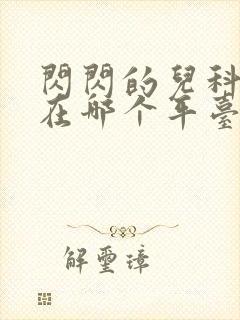 閃閃的兒科
在哪个年臺
解璽璋